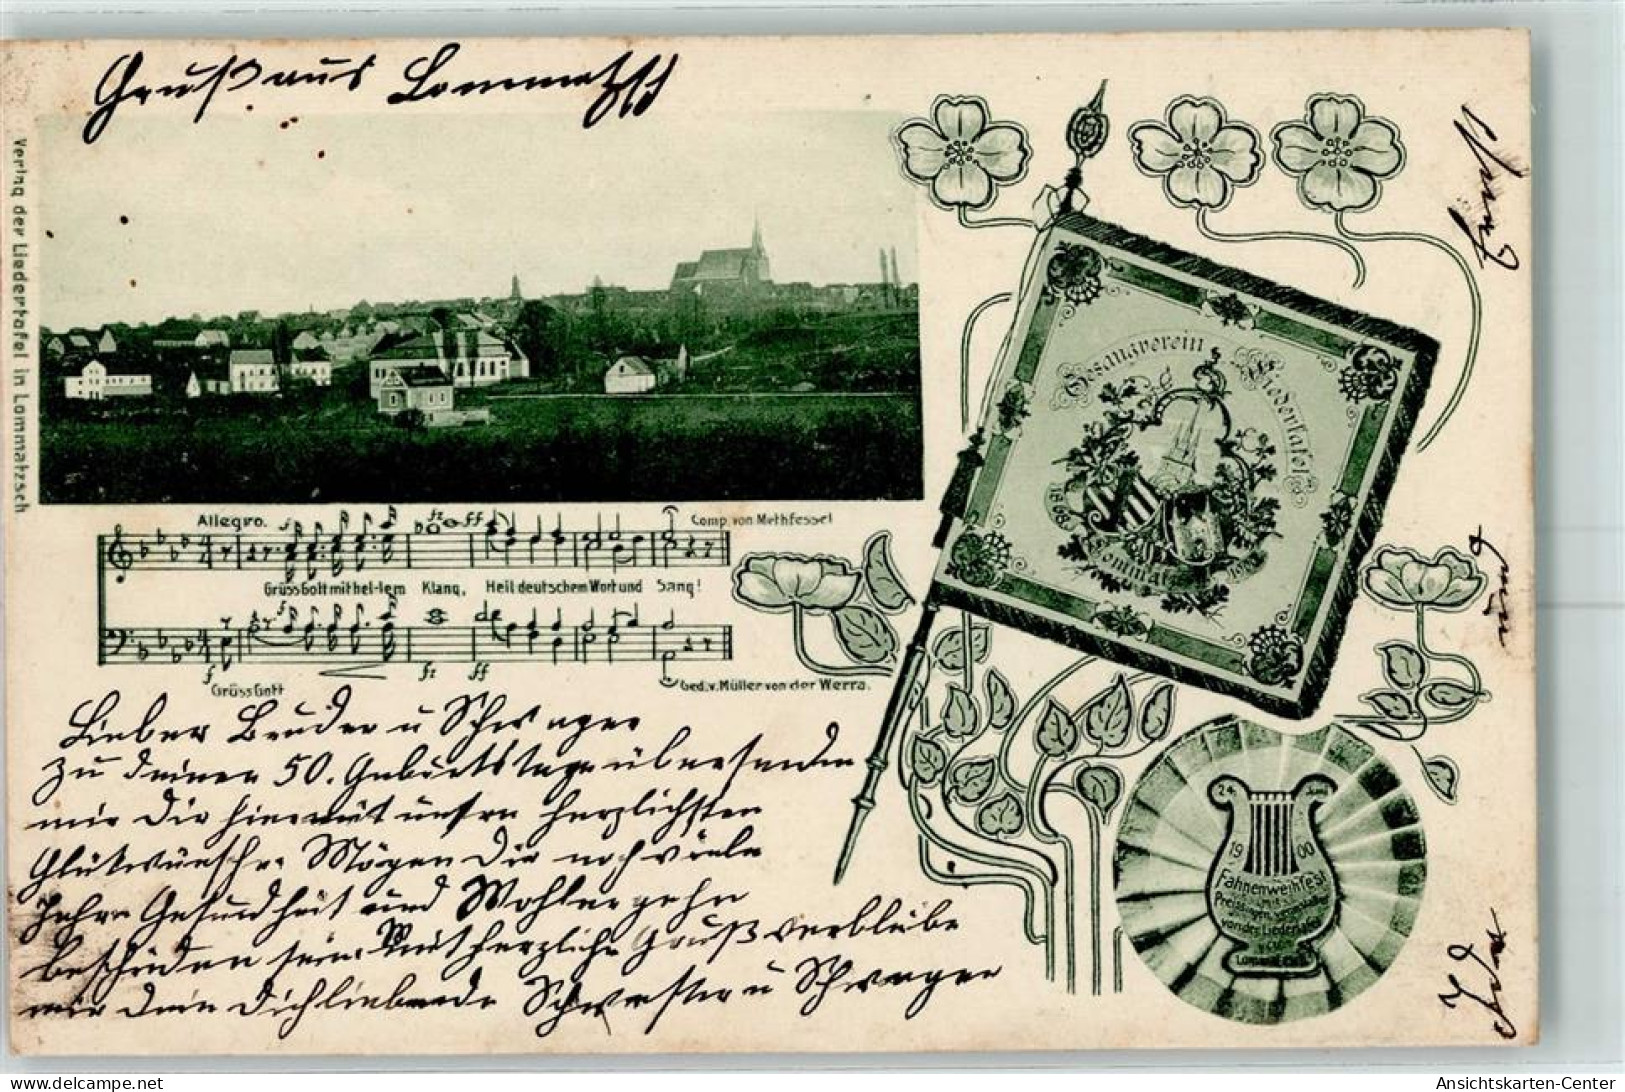 Gruß aus Lommatzsch
Verlag der Liedertafel in Lommatzsch
Allegro.
Comp. von Methfessel
Grüss Gott mit hel-lem Klang, Heil deutschem Wort und Sang!
Grüss Gott
Ged. v. Müller von der Werra.
Gesangverein Liedertafel
1868
Lommatzsch
24. Juni
1900
Fahnenweihfest
mit
Preissingen, veranstaltet
von der Liedertafel
Lommatzsch
Lieber Bruder u Schwager
zu deinen 50. Geburtstage übersenden
wir Dir hiermit unsre herzlichsten
Glükwünsche. Mögen Dir noch viele
Jahre Gesundheit und Wohlergehn
beschieden sein. Mit herzliche Gruß verbleibe
wir dein Dich liebende Schwester u Schwager
Ernst
und
Ida
Ansichtskarten-Center